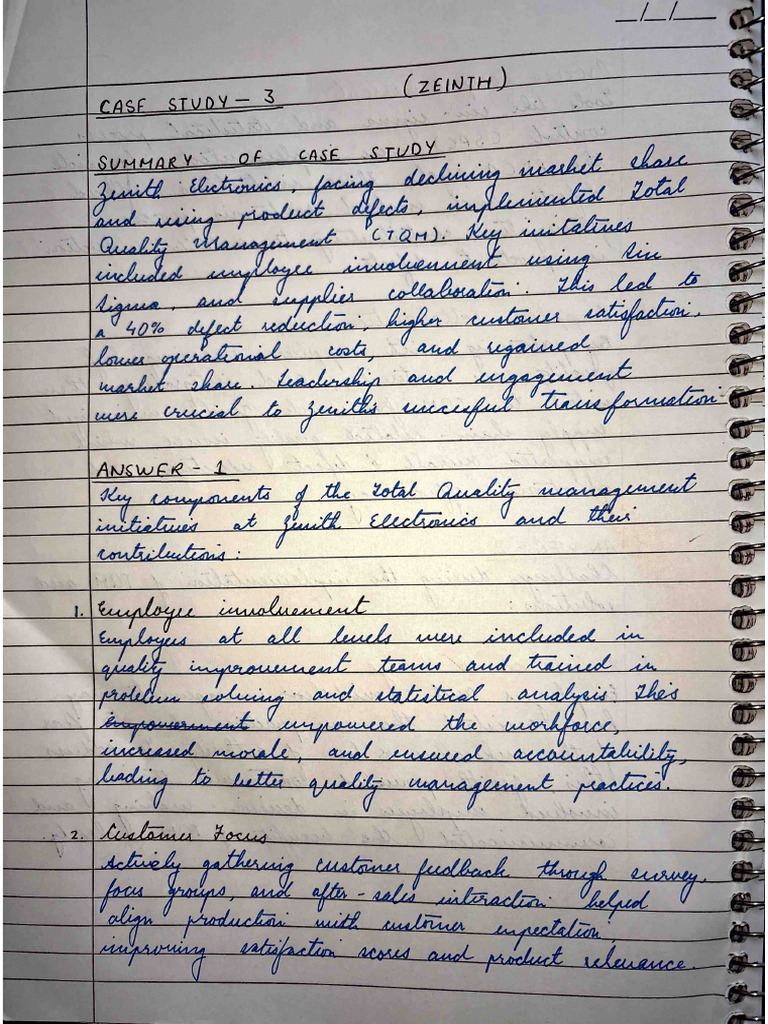 _/_/__
CASE STUDY - 3 (ZEINTH)
SUMMARY OF CASE STUDY
Zenith Electronics, facing declining market share
and rising product defects, implemented Total
Quality Management (TQM). Key initatives
included employee involvement using Six
Sigma, and supplier collaboration. This led to
a 40% defect reduction, higher customer satisfaction,
lower operational costs, and regained
market share. Leadership and engagement
were crucial to Zenith's succesful transformation
ANSWER - 1
Key components of the Total Quality management
initiatives at Zenith Electronics and their
contributions:
1. Employee involvement
Employees at all levels were included in
quality improvement teams and trained in
problem solving and statistical analysis. This
empowerment empowered the workforce,
increased morale, and ensured accountability,
leading to better quality management practices.
2. Customer Focus
Actively gathering customer feedback through survey,
focus groups, and after-sales interaction helped
align production with customer expectation,
improving satisfaction scores and product relevance.